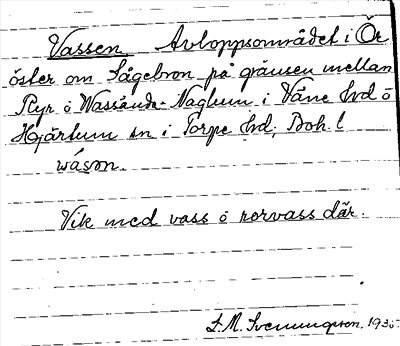 Vassen, Avloppsområdet i Ör
öster om Sågebron på gränsen mellan
Ryr o Wassända-Naglum i Väne hd o
Hjärtum sn i Torpe hd, Boh. l
wásọn.
Vik med vass o rörvass där.
L. M. Svenungson. 1935.